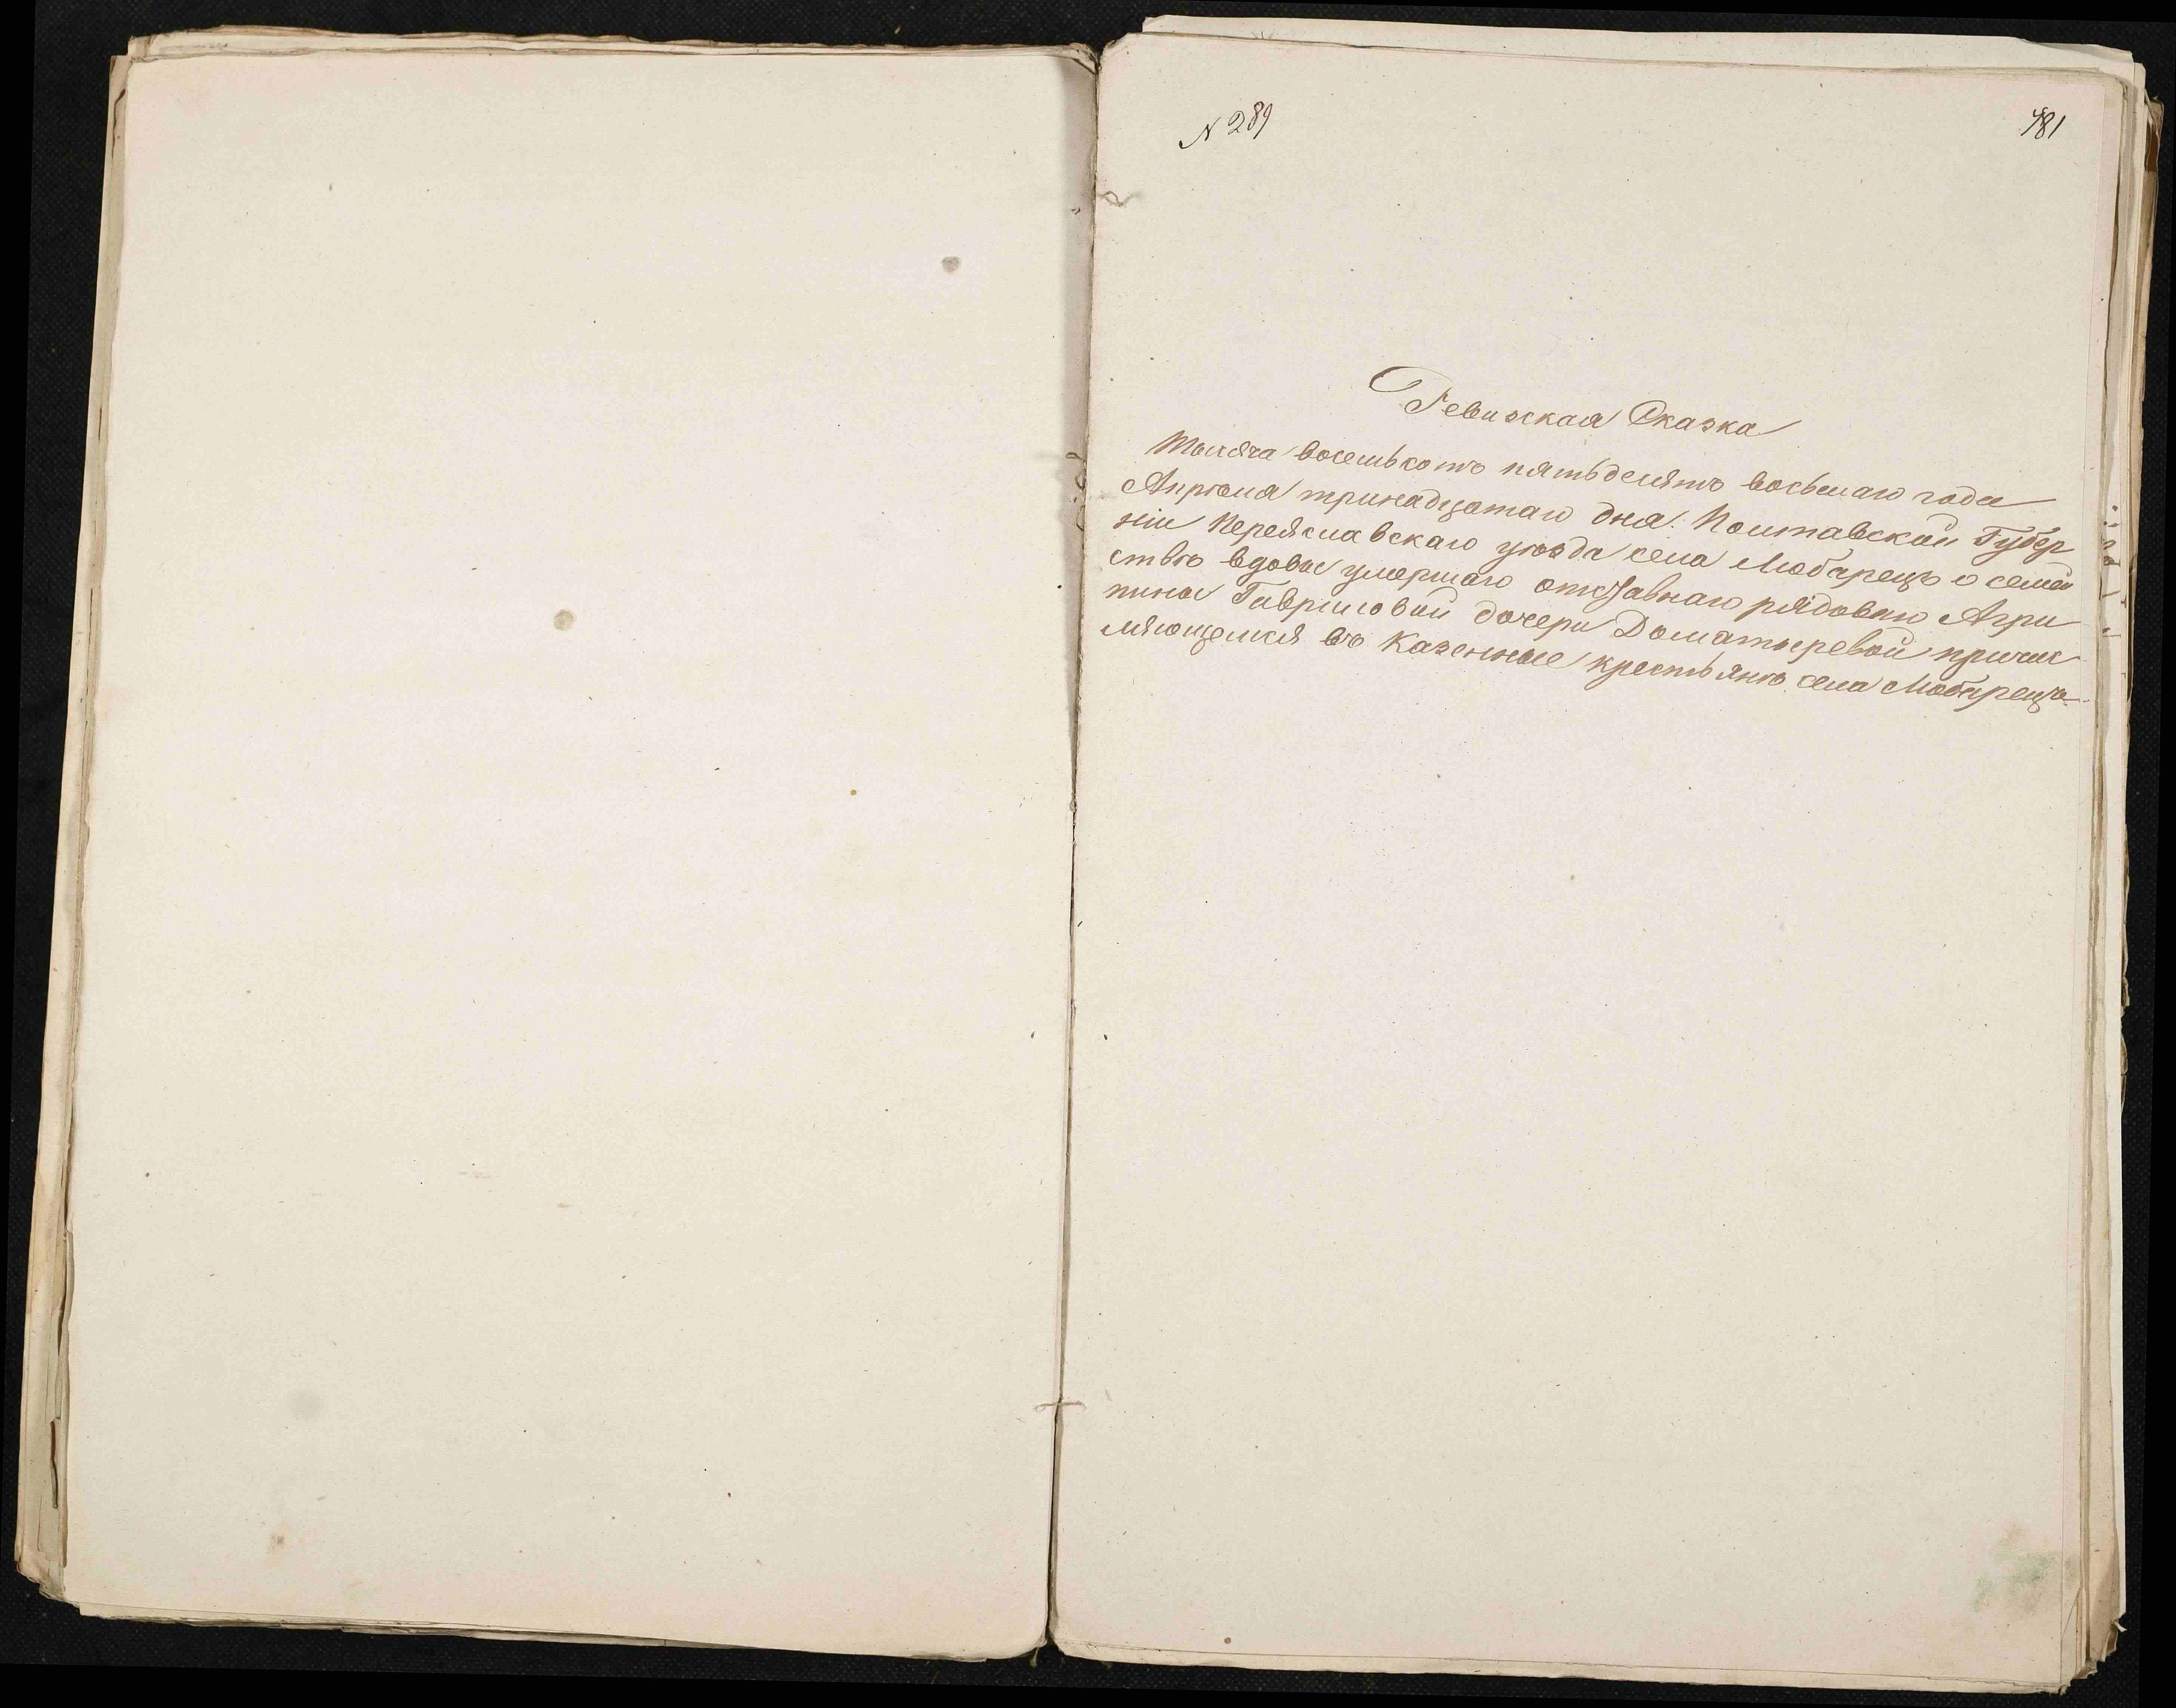 N 289
481
Ревизская Сказка
Тысяча восемьсотъ пятьдесятъ восьмаго года
Апрѣля тринадцатаго дня. Полтавской Губер
ніи Переяславскаго уѣзда села Любарецъ о семей
ствѣ вдовы умершаго отставнаго рядоваго Агри
пины Гавриловой дочери Доматыревой причис
ляющемся въ Казенные крестьяне села Любарецъ